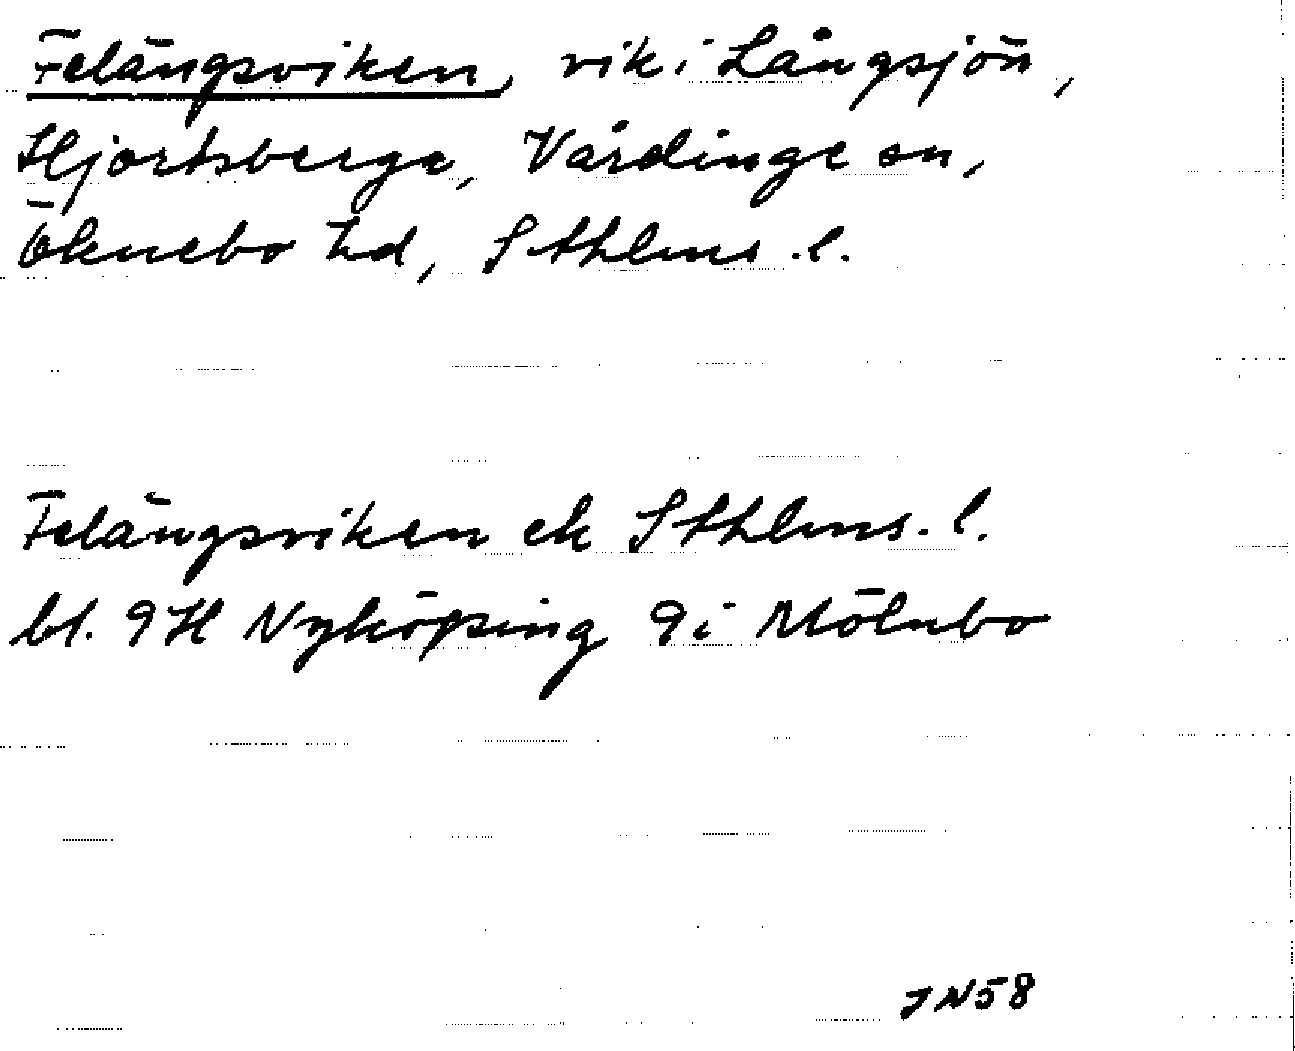 Felängsviken, vik i Långsjön,
Hjortsberga, Vårdinge sn,
Öknebo hd, Sthlms. l.
Felängsviken ek Sthlms. l.
bl. 9H Nyköping 9i Mölnbo
JN58